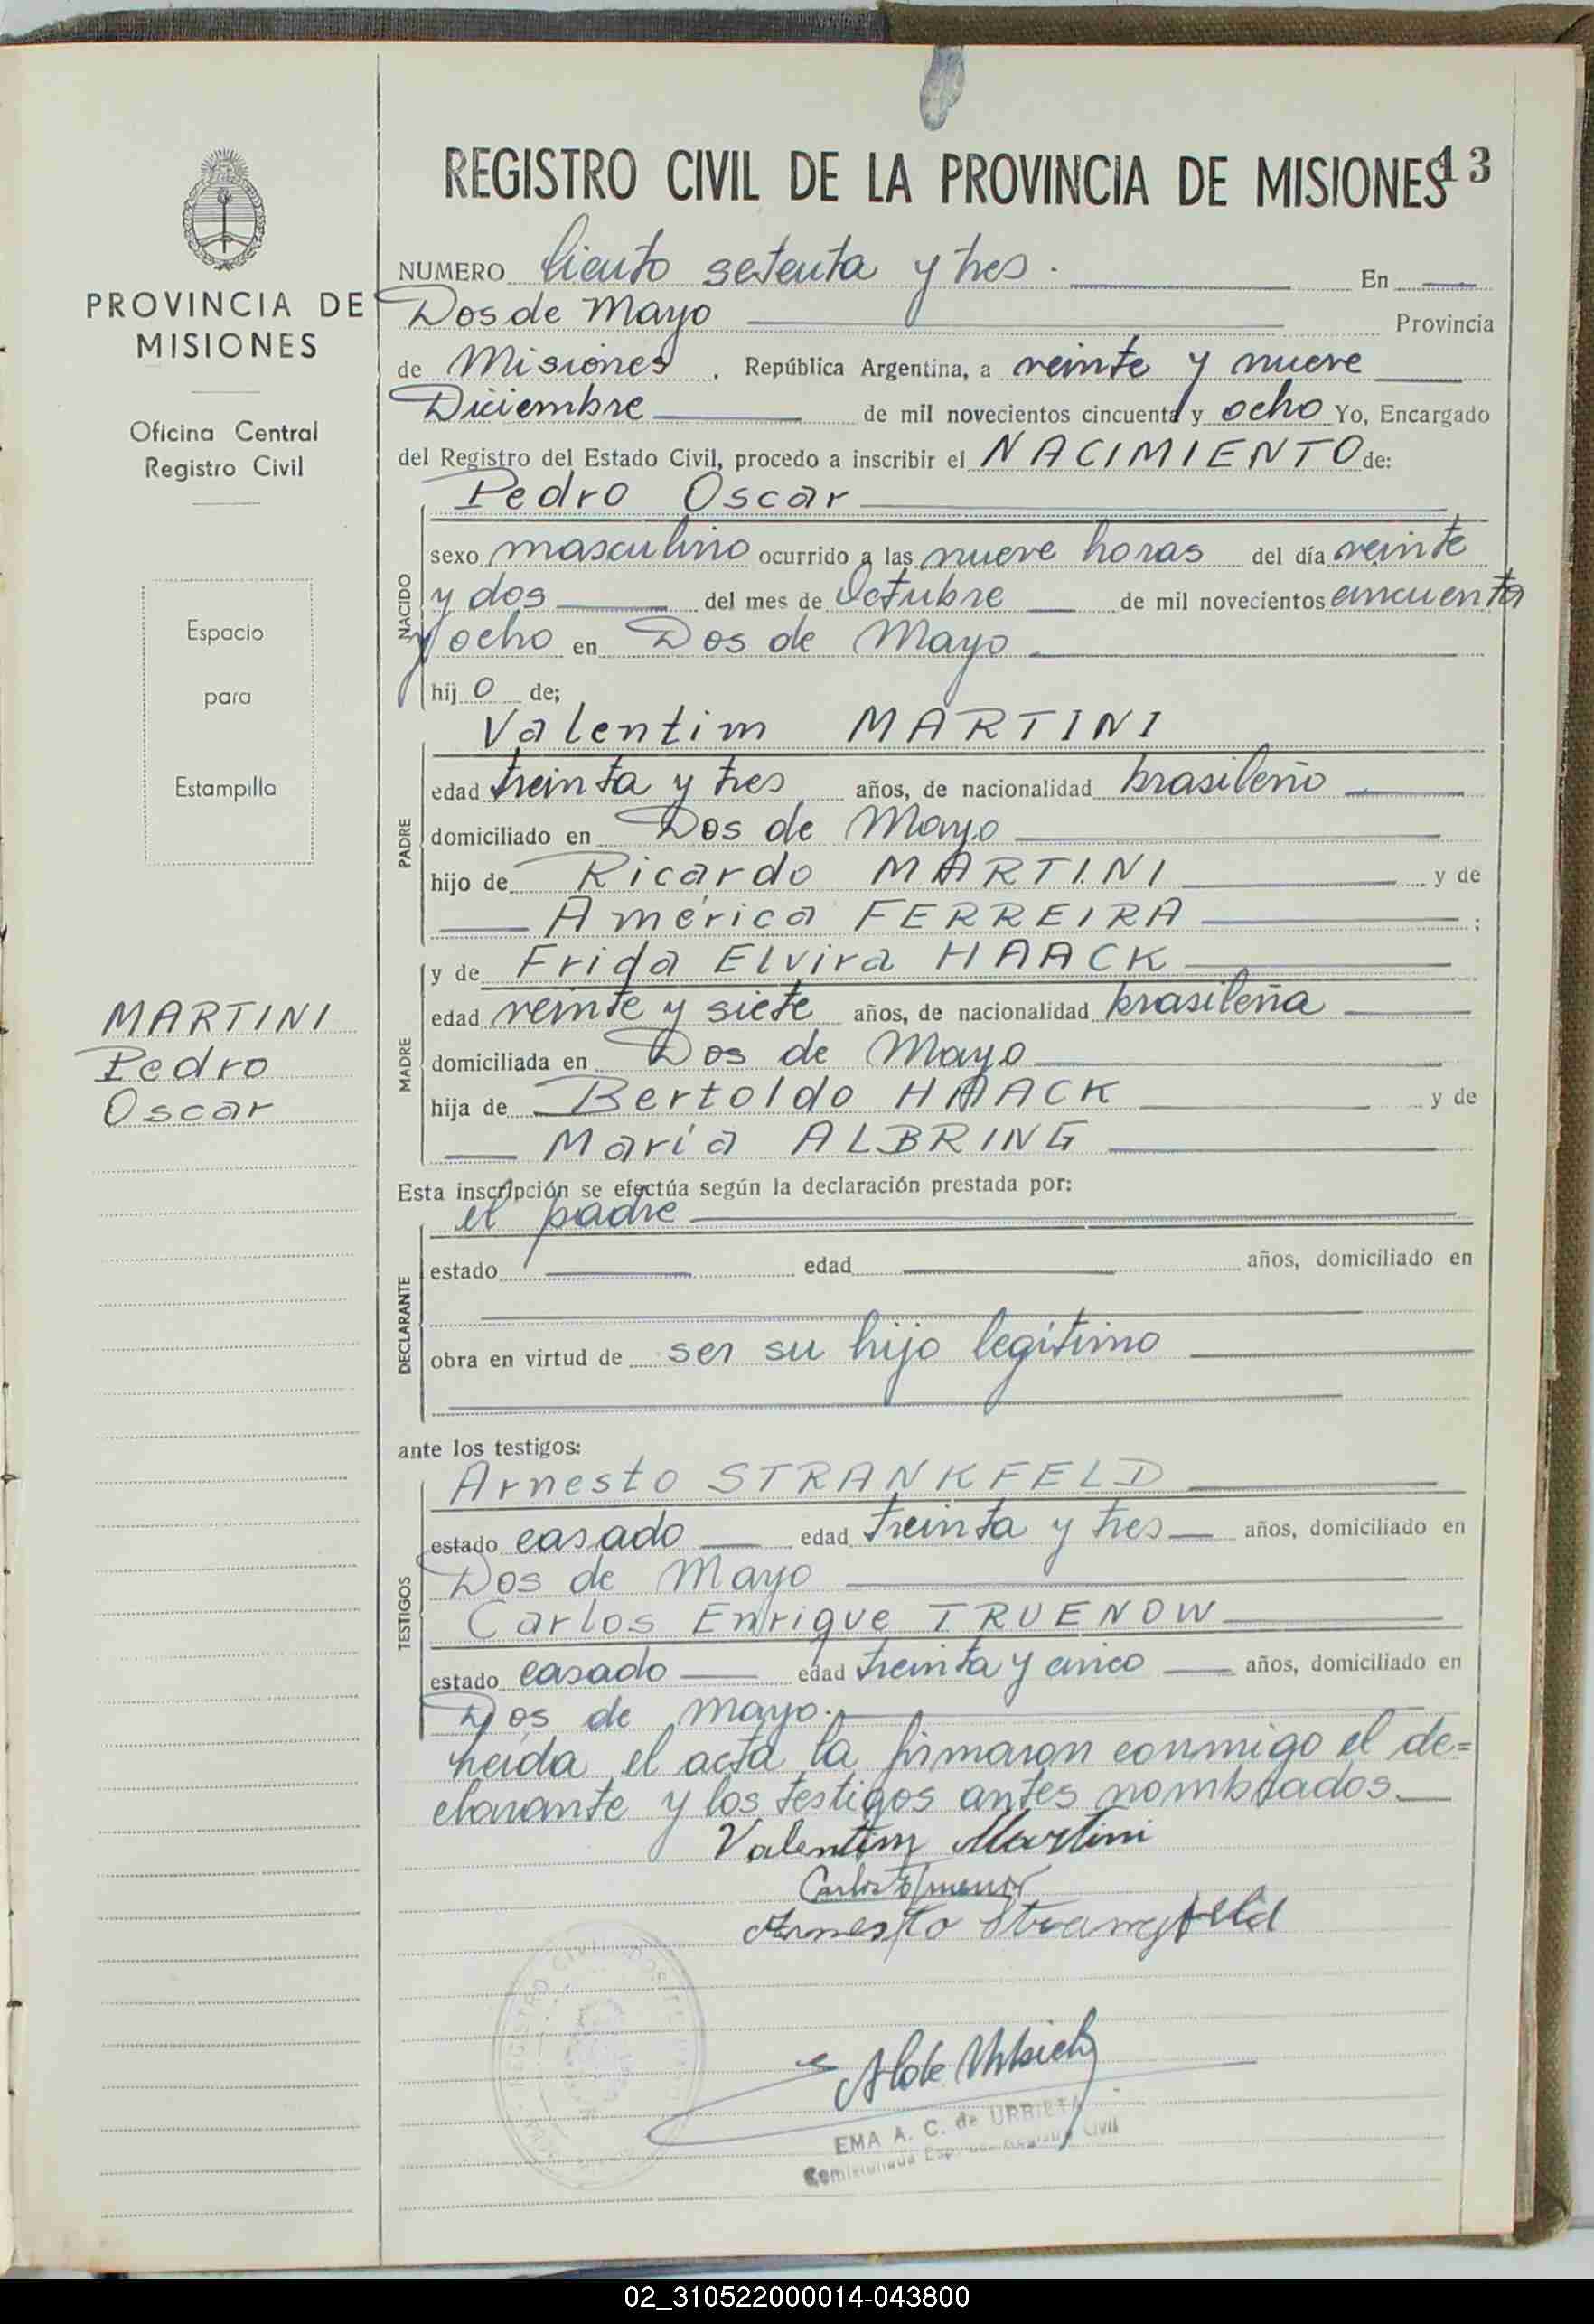 REGISTRO CIVIL DE LA PROVINCIA DE MISIONES 13
PROVINCIA DE
MISIONES
Oficina Central
Registro Civil
Espacio
para
Estampilla
MARTINI
Pedro
Oscar
NUMERO Ciento setenta y tres. En
Dos de Mayo Provincia
de Misiones, República Argentina, a veinte y nueve
Diciembre de mil novecientos cincuenta y ocho Yo, Encargado
del Registro del Estado Civil, procedo a inscribir el NACIMIENTO de:
NACIDO
Pedro Oscar
sexo masculino ocurrido a las nueve horas del día veinte
y dos del mes de Octubre de mil novecientos cincuenta
y ocho en Dos de Mayo
hij o de;
PADRE
Valentim MARTINI
edad treinta y tres años, de nacionalidad brasileño
domiciliado en Dos de Mayo
hijo de Ricardo MARTINI y de
América FERREIRA ;
MADRE
y de Frida Elvira HAACK
edad veinte y siete años, de nacionalidad brasileña
domiciliada en Dos de Mayo
hija de Bertoldo HAACK y de
María ALBRING
Esta inscripción se efectúa según la declaración prestada por:
DECLARANTE
el padre
estado edad años, domiciliado en
obra en virtud de ser su hijo legítimo
ante los testigos:
TESTIGOS
Arnesto STRANKFELD
estado casado edad treinta y tres años, domiciliado en
Dos de Mayo
Carlos Enrique TRUENOW
estado casado edad treinta y cinco años, domiciliado en
Dos de mayo.
Leída el acta la firmaron conmigo el de=
clarante y los testigos antes nombrados.
Valentim Martini
Carlos
Arnesto Strangfeld
REGISTRO CIVIL
EMA A. C. de URBIETA
Registro Civil
02_310522000014-043800